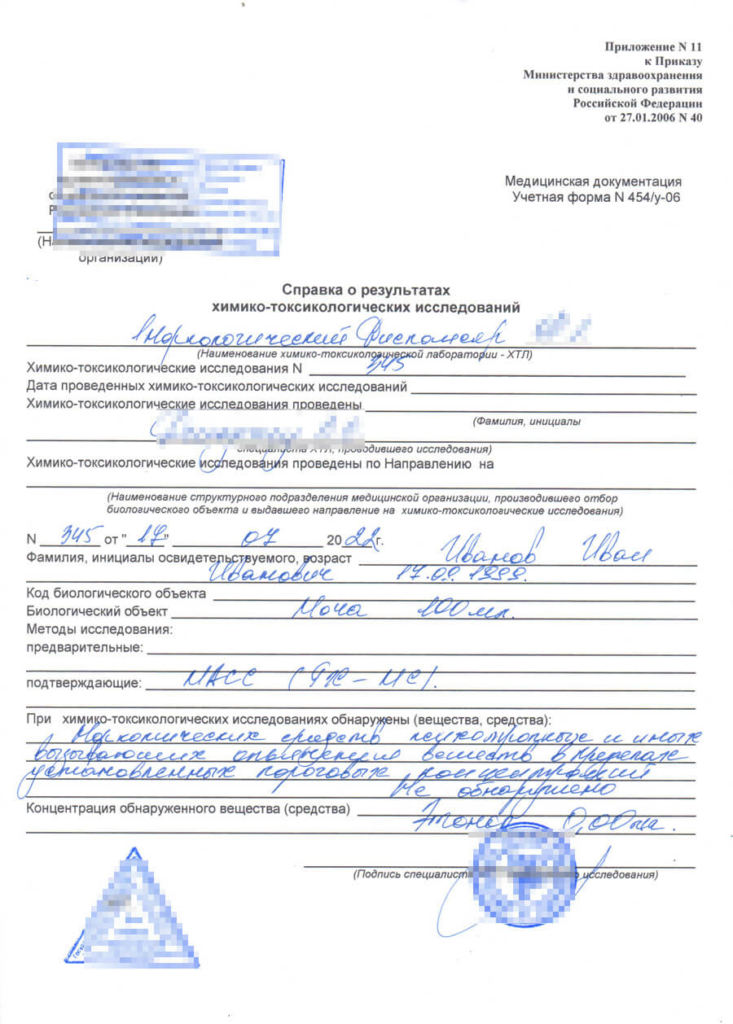 Приложение N 11
к Приказу
Министерства здравоохранения
и социального развития
Российской Федерации
от 27.01.2006 N 40
Медицинская документация
Учетная форма N 454/у-06
организации)
Справка о результатах
химико-токсикологических исследований
Наркологический Диспансер
(Наименование химико-токсикологической лаборатории - ХТЛ)
Химико-токсикологические исследования N 345
Дата проведенных химико-токсикологических исследований
Химико-токсикологические исследования проведены
(Фамилия, инициалы
специалиста ХТЛ, проводившего исследования)
Химико-токсикологические исследования проведены по Направлению на
(Наименование структурного подразделения медицинской организации, производившего отбор
биологического объекта и выдавшего направление на химико-токсикологические исследования)
N 345 от "17" 07 2022г.
Фамилия, инициалы освидетельствуемого, возраст Иванов Иван
Иванович 17.09.1999.
Код биологического объекта
Биологический объект Моча 100мл.
Методы исследования:
предварительные:
подтверждающие: МАСС (ГЖ-МС).
При химико-токсикологических исследованиях обнаружены (вещества, средства):
Наркотических средств психотропных и иных
вызывающих опьянение веществ в пределах
установленных пороговых концентраций
Не обнаружено
Концентрация обнаруженного вещества (средства)
Этанол 0,00
(Подпись специалист исследования)